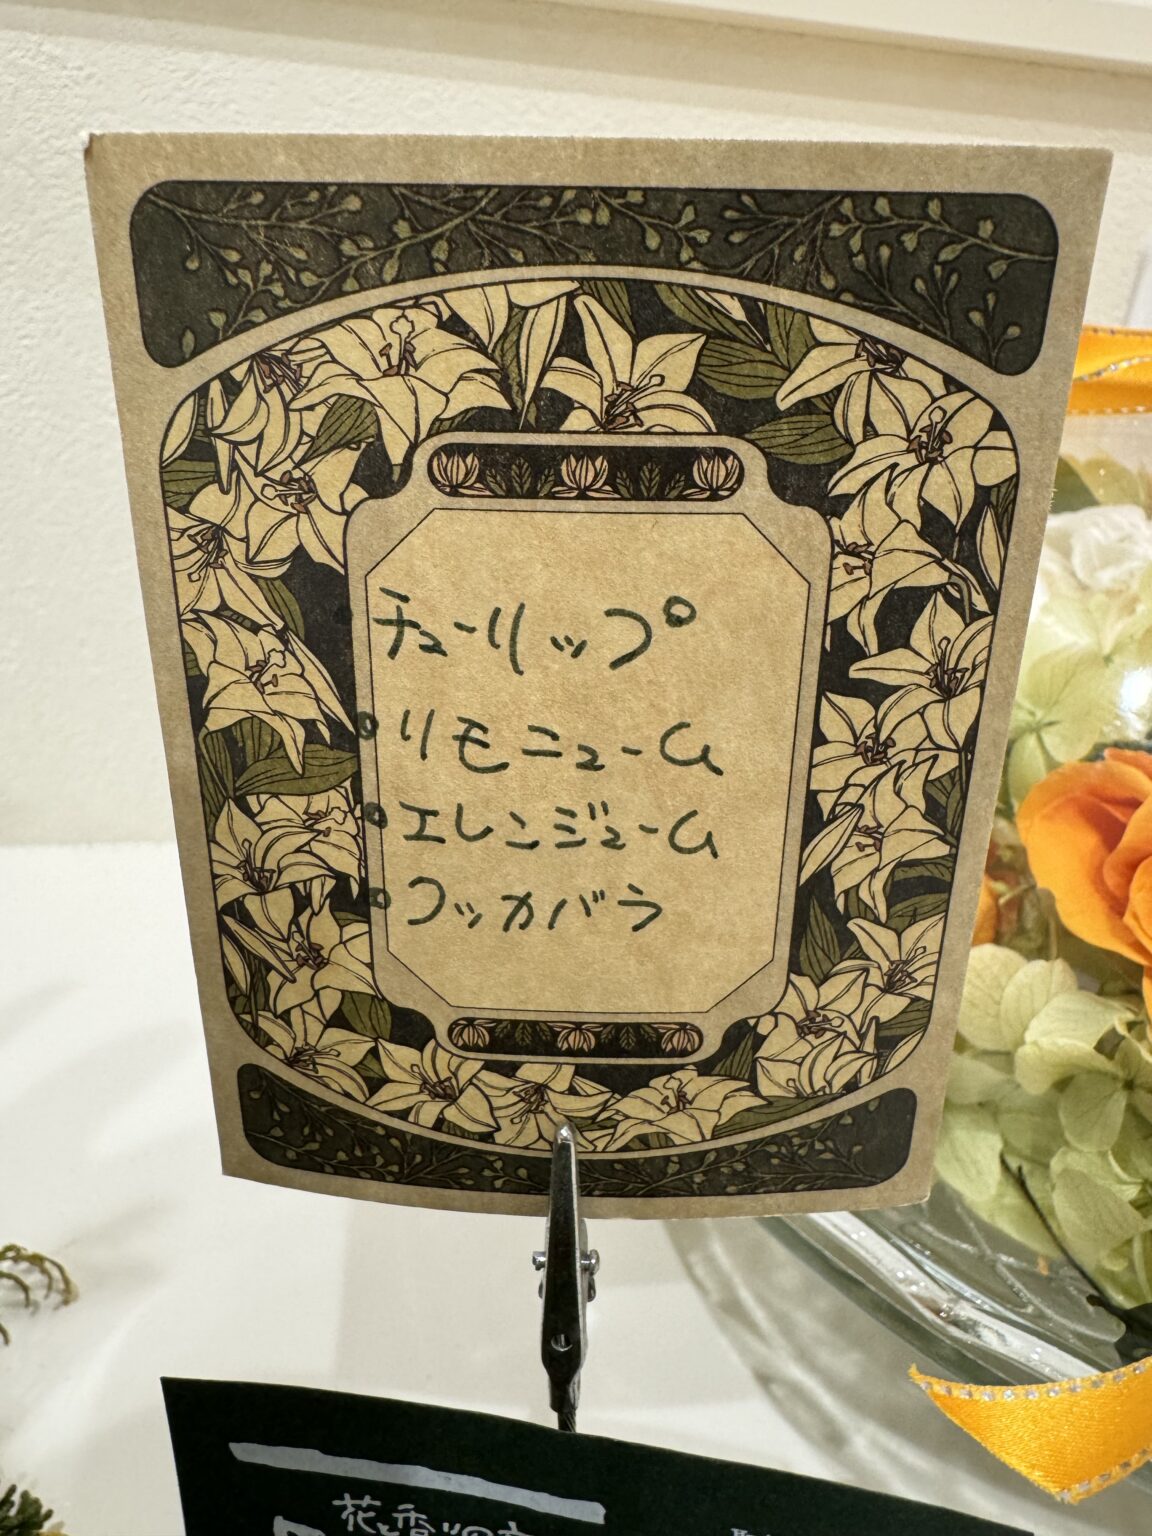 ・チューリップ
・リモニューム
・エレンジューム
・フッカバラ
花と香りの